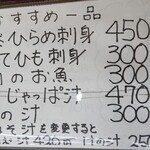 おすすめ一品
ひらめ刺身 450
てひも刺身 300
のお魚 300
じゃっぱ汁 470
の汁 300
そ汁を変更すると
汁 420 汁 25